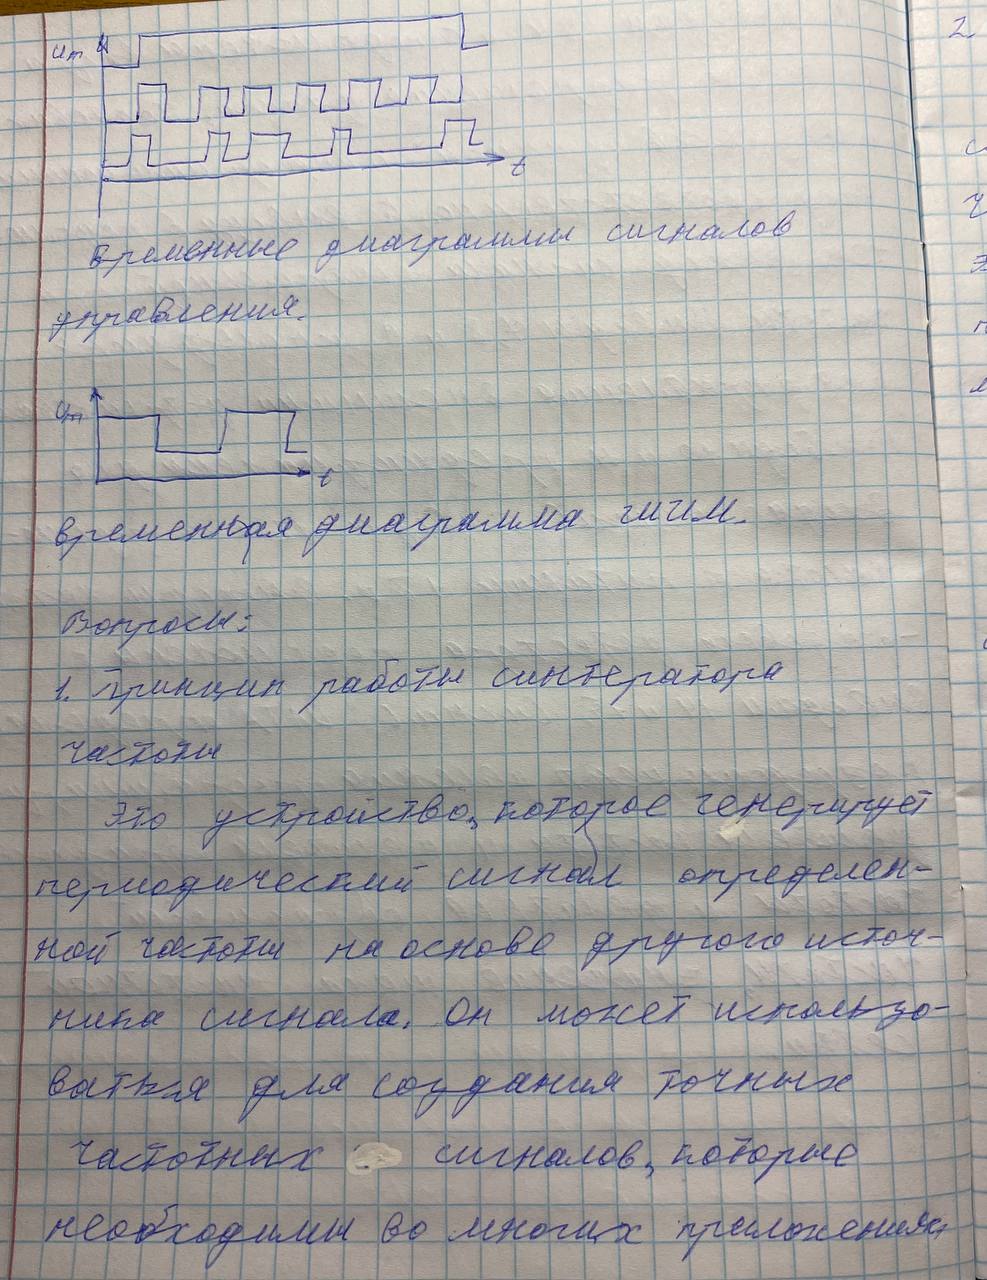 Um
t
Временные диаграммы сигналов
управления.
Um
t
Временная диаграмма ШИМ.
Вопросы:
1. Принцип работы синтератора
частоты
Это устройство, которое генерирует
периодический сигнал определен-
ной частоты на основе другого источ-
ника сигнала. Он может использо-
ваться для создания точных
частотных сигналов, которые
необходимы во многих приложениях,
2.